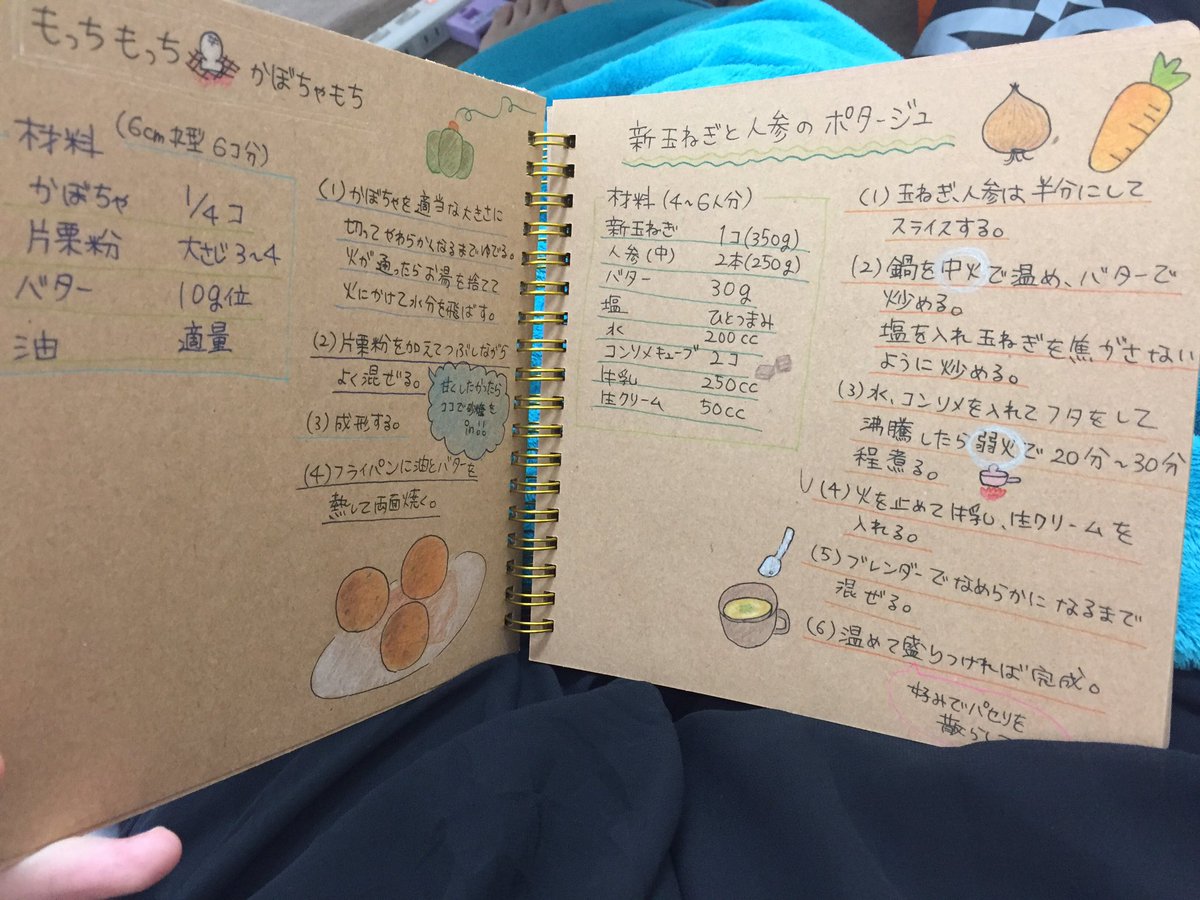 もっちもっち かぼちゃもち
材料 (6cm丸型 6コ分)
かぼちゃ 1/4コ
片栗粉 大さじ3~4
バター 10g位
油 適量
(1) かぼちゃを適当な大きさに
切ってやわらかくなるまでゆでる。
火が通ったらお湯を捨てて
火にかけて水分を飛ばす。
(2) 片栗粉を加えてつぶしながら
よく混ぜる。
甘くしたかったら
ココで砂糖を
in!!
(3) 成形する。
(4) フライパンに油とバターを
熱して両面焼く。
新玉ねぎと人参のポタージュ
材料 (4~6人分)
新玉ねぎ 1コ(350g)
人参(中) 2本(250g)
バター 30g
塩 ひとつまみ
水 200cc
コンソメキューブ 2コ
牛乳 250cc
生クリーム 50cc
(1) 玉ねぎ、人参は半分にして
スライスする。
(2) 鍋を中火で温め、バターで
炒める。
塩を入れ玉ねぎを焦がさない
ように炒める。
(3) 水、コンソメを入れてフタをして
沸騰したら弱火で20分~30分
程煮る。
(4) 火を止めて牛乳、生クリームを
入れる。
(5) ブレンダーでなめらかになるまで
混ぜる。
(6) 温めて盛りつければ完成。
好みでパセリを
散らして